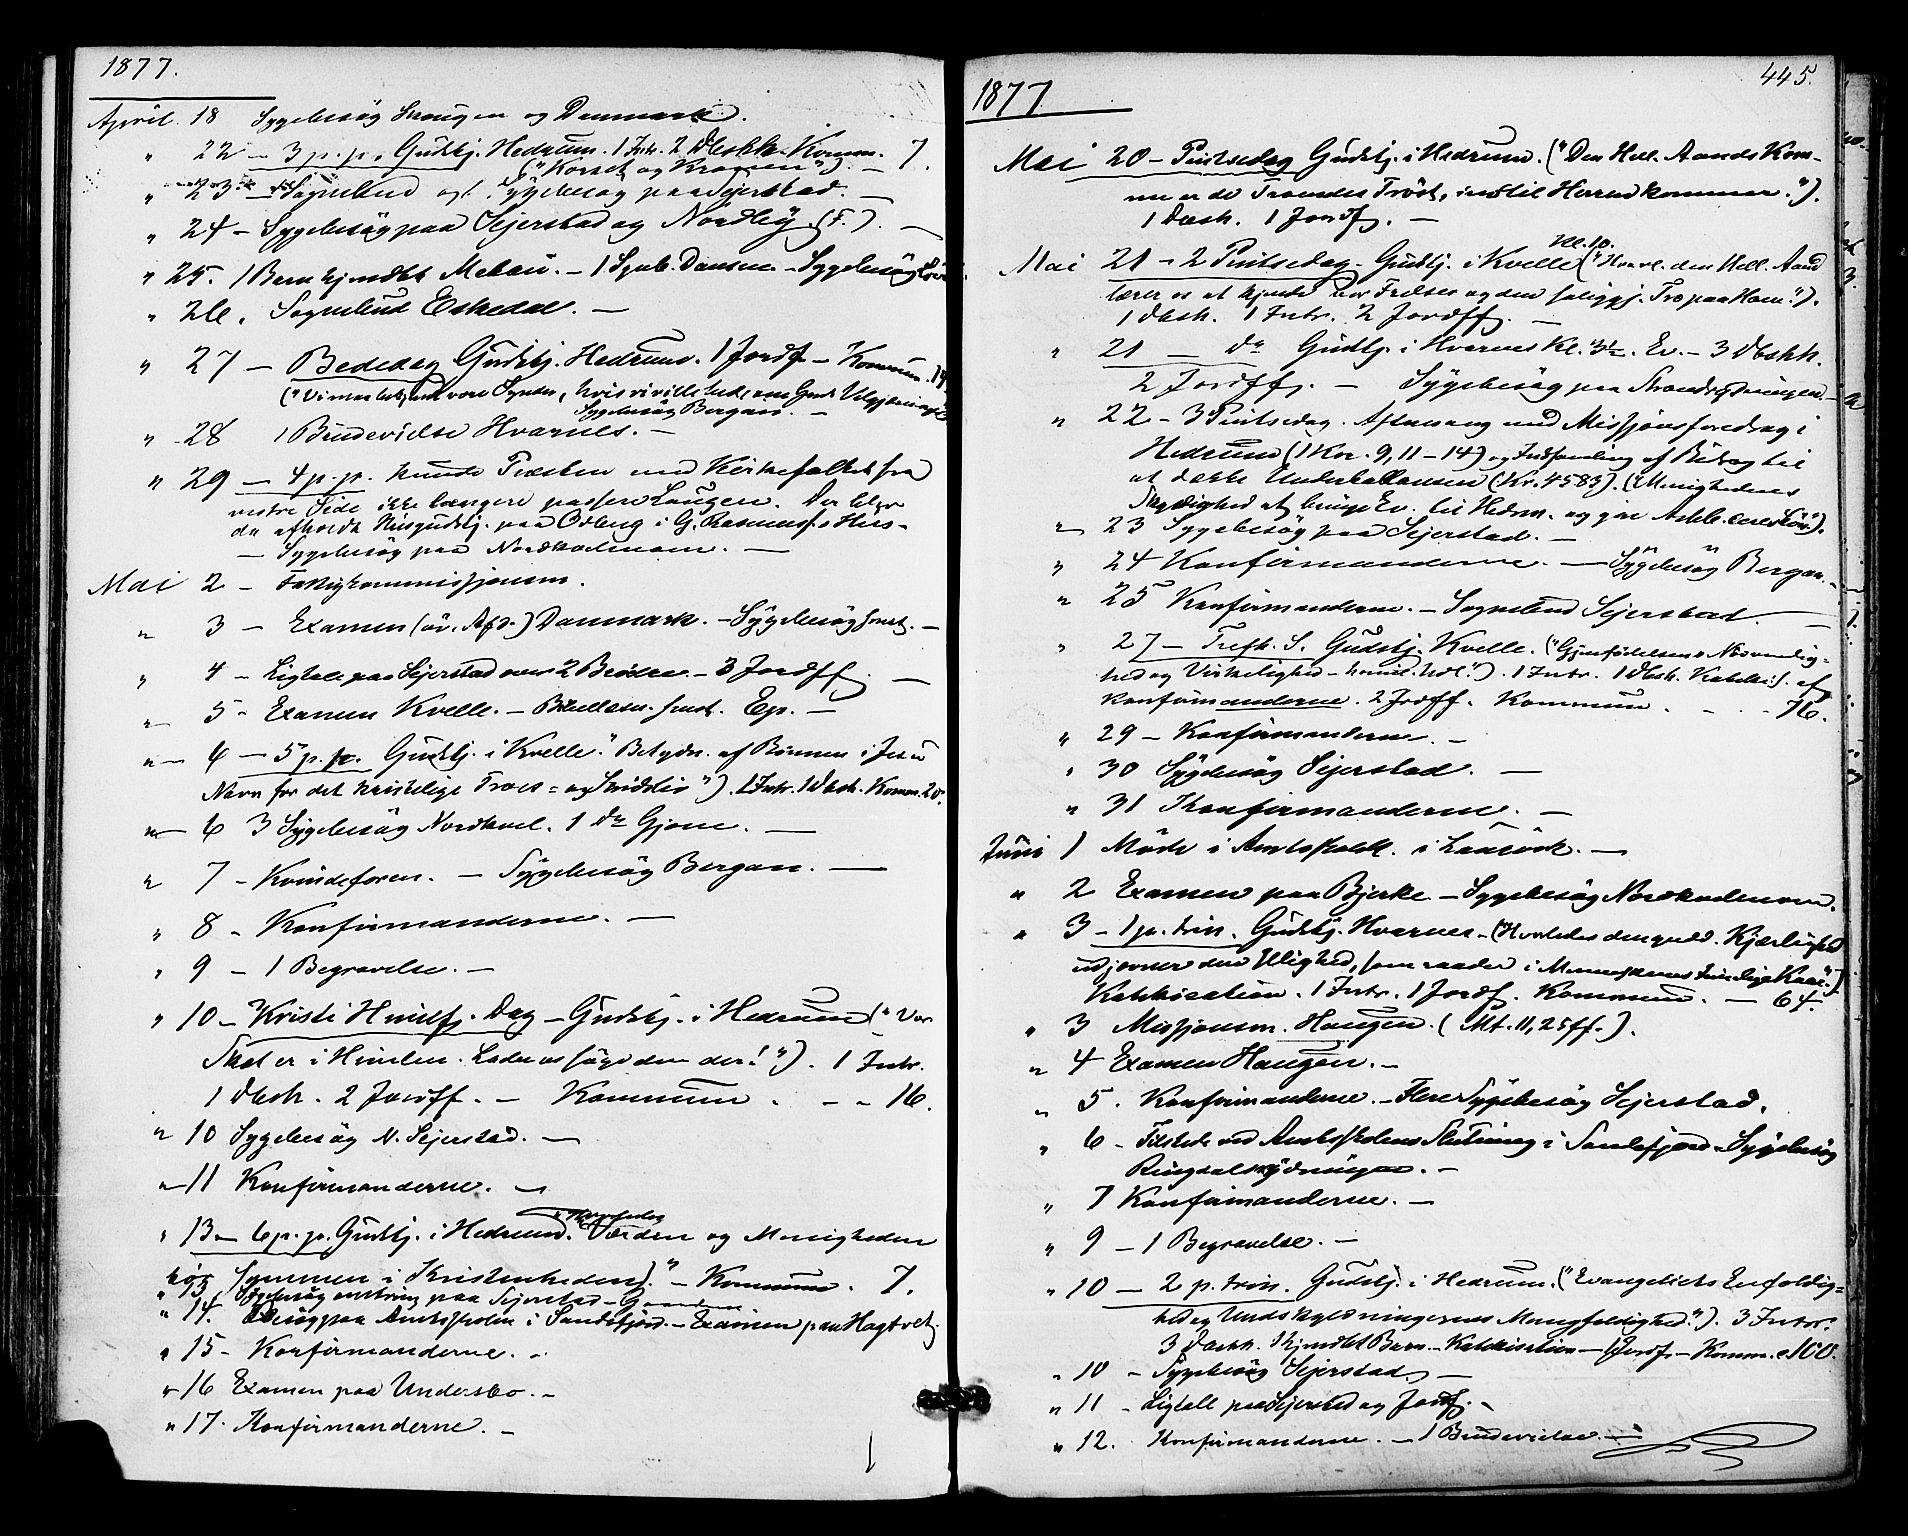 1877.
April 18 Sygebesøg Skougen og Danmark.
" 22 – 3 p. p. Gudstj. Hedrum. 1 Intr. 2 Dbshh. Komm. 7.
("Korset og Kronen"). –
" 23 – Sognebud og 1 Sygebesøg paa Sejerstad. –
" 24 – Sygebesøg paa Sejerstad og Nordby (F.). –
" 25. 1 Barn hjmdbt – 1 Sygebesøg
" 26. Sognebud Eskedal. –
" 27 – Bededag Gudstj. Hedrum. 1 Jordf – Kommun. 14
Sygebesøg Bergan. –
" 28 1 Brudevielse Hvarnes. –
" 29 – 4 p. p. kunde Præsten med Kirkefolket fra
vestre Side ikke længere passere Laugen. Der blev
da afholdt Husgudstj. paa Odberg i G. Rasmuss. Hus –
– Sygebesøg paa Nordkvelmoen. –
Mai 2 – Fattigkommissjonsm.
" 3 – Examen (öv. Afd.) Danmark. – Sygebesøg smst. –
" 4 – Ligtale paa Sejerstad over 2 Brødre – 3 Jordff. –
" 5 – Examen Kvelle. – smst. Ep. –
" 6 – 5 p. p. Gudstj. i Kvelle. "Betydn. af Bönnen i Jesu
Navn for det kristelige Troes = og Livsliv"). 1 Intr. 1 Dbsh. Komm. 20.
" 6 3 Sygebesøg Nordkvel. 1 do Gjone. –
" 7 – Kvindeforen. – Sygebesøg Bergan. –
" 8 – Konfirmanderne. –
" 9 – 1 Begravelse. –
" 10 – Kristi Himlfj. Dag – Gudstj. i Hedrum ("Vor
Skat er i Himlen. Lader os søge den der!"). 1 Intr.
1 Dbsh. 2 Jordff. – Kommun . – – 16.
" 10 Sygebesøg N. Sejerstad. –
" 11 Konfirmanderne. –
" 13 – 6 p. p. Gudstj. i Hedrum. "Hvorledes Verden og Menigheden
hør sammen i Kristenheden)." – Kommun . 7.
" 13 Sygebesøg paa Sejerstad –
" 14. Besøg paa Amtsskolen i Sandefjord. – Examen paa Hagtvet.
" 15 – Konfirmanderne. –
" 16 Examen paa Undersbo. –
" 17. Konfirmanderne. –
1877
445.
Mai 20 – Pintsedag Gudstj. i Hedrum. ("Den Hell. Aands Kom-
me er de Troendes Tröst, indtil Herren kommer."). 
1 Dbsh. 1 Jordf. –
Kl. 10.
Mai 21 – 2 Pintsedag – Gudstj. i Kvelle ("Hvorl. den Hell. Aand
lærer os at kjende vor Frelser og den saliggj. Tro paa Ham.").
1 Dbsh. 1 Intr. 2 Jordff. –
" 21 – do Gudstj. i Hvarnes Kl. 3½. Ev. – 3 Dbshh.
2 Jordff. – Sygebesøg paa Strandrydningen. –
" 22 – 3 Pintsedag. Aftensang med Missjonsforedrag i
Hedrum (1 Kor. 9, 11 – 14) og Indsamling af Bidrag til
at dække Underballansen (Kr. 4583). ("Menighedens
Skyldighed at bringe Ev. til Hedn.
" 23 Sygebesøg paa Sejerstad. –
" 24 Konfirmanderne. – Sygebesøg Bergan. –
" 25 Konfirmanderne. – Sognebud Sejerstad. –
" 27 – Trefh. S. Gudstj. Kvelle. ("Gjenfødelsens Nødvendig-
hed og Virkelighed – "). 1 Intr. 1 Dbsh. Katekis. af
Konfirmanderne. 2 Jordff. Kommun . – – 76.
" 29 – Konfirmanderne. –
" 30 Sygebesøg Sejerstad. –
" 31 Konfirmanderne. –
Juni 1 Möde i Amtsskolek. i Laurvik. –
" 2 Examen paa Bjerke – Sygebesøg Nordkvelmoen.
" 3 – 1 p. trin. Gudstj. Hvarnes – (Hvorledes den gudd. Kjærlighed
udjevner den Ulighed, som raader i Menneskenes timelige Kaar.")
Katekisation. 1 Intr. 1 Jordf. Kommun . – 64.
" 3 Missjonsm. Haugen. (Mt. 11, 25 ff.).
" 4 Examen Haugen. –
" 5. Konfirmanderne. – Flere Sygebesøg Sejerstad.
" 6 – Tilstede ved Amtsskolens Slutning i Sandefjord – Sygebesøg
Ringdalsrydningen. –
" 7 Konfirmanderne. –
" 9 – 1 Begravelse. –
" 10 – 2 p. trin. Gudstj. i Hedrum. ("Evangeliets Enfoldig=
hed og Undskyldningernes Mangfoldighed."). 3 Intr.
3 Dbshh. 1 hjmdbt Barn. – Katekisation – 1 Jordf. – Komm. 100.
" 10 – Sygebesøg Sejerstad. –
" 11 – Ligtale paa Sejerstad og Jordf. –
" 12. Konfirmanderne. – 1 Brudevielse. –